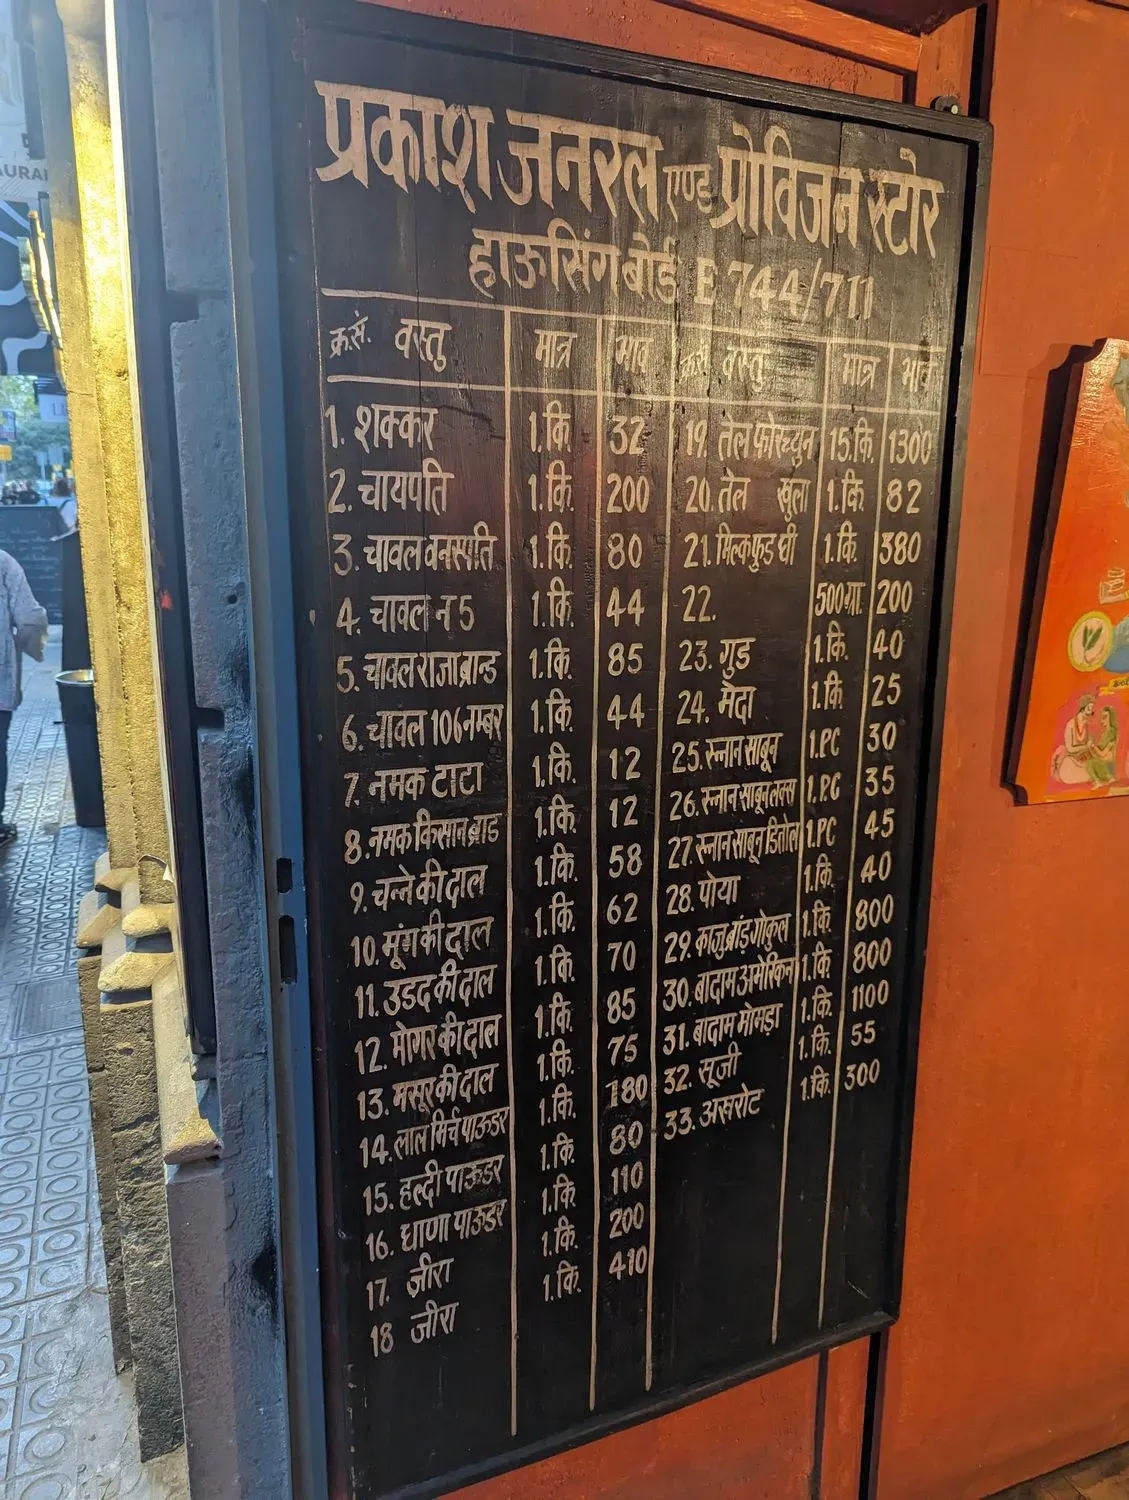 प्रकाश जनरल एण्ड प्रोविजन स्टोर
हाऊसिंग बोर्ड E 744/711
क्र.सं. वस्तु मात्र भाव
1. शक्कर 1.कि. 32
2. चायपति 1.कि. 200
3. चावल वनस्पति 1.कि. 80
4. चावल न 5 1.कि. 44
5. चावल राजा ब्रान्ड 1.कि. 85
6. चावल 106 नम्बर 1.कि. 44
7. नमक टाटा 1.कि. 12
8. नमक किसान ब्राड 1.कि. 12
9. चन्ने की दाल 1.कि. 58
10. मूंग की दाल 1.कि. 62
11. उडद की दाल 1.कि. 70
12. मोगर की दाल 1.कि. 85
13. मसूर की दाल 1.कि. 75
14. लाल मिर्च पाऊडर 1.कि. 180
15. हल्दी पाऊडर 1.कि. 80
16. धाणा पाऊडर 1.कि. 110
17. ज़ीरा 1.कि. 200
18 जीरा 1.कि. 410
क्र.सं. वस्तु मात्र भाव
19. तेल फोरच्युन 15.कि. 1300
20. तेल खुला 1.कि. 82
21. मिल्कफुड घी 1.कि. 380
22. 500ग्रा. 200
23. गुड 1.कि. 40
24. मेदा 1.कि. 25
25. स्नान साबून 1.PC 30
26. स्नान साबून लक्स 1.PC 35
27. स्नान साबून डितोल 1.PC 45
28. पोया 1.कि. 40
29. काजु ब्रांड गोकुल 1.कि. 800
30. बादाम अमेरिकन 1.कि. 800
31. बादाम मोमड़ा 1.कि. 1100
32. सूजी 1.कि. 55
33. अखरोट 1.कि. 300